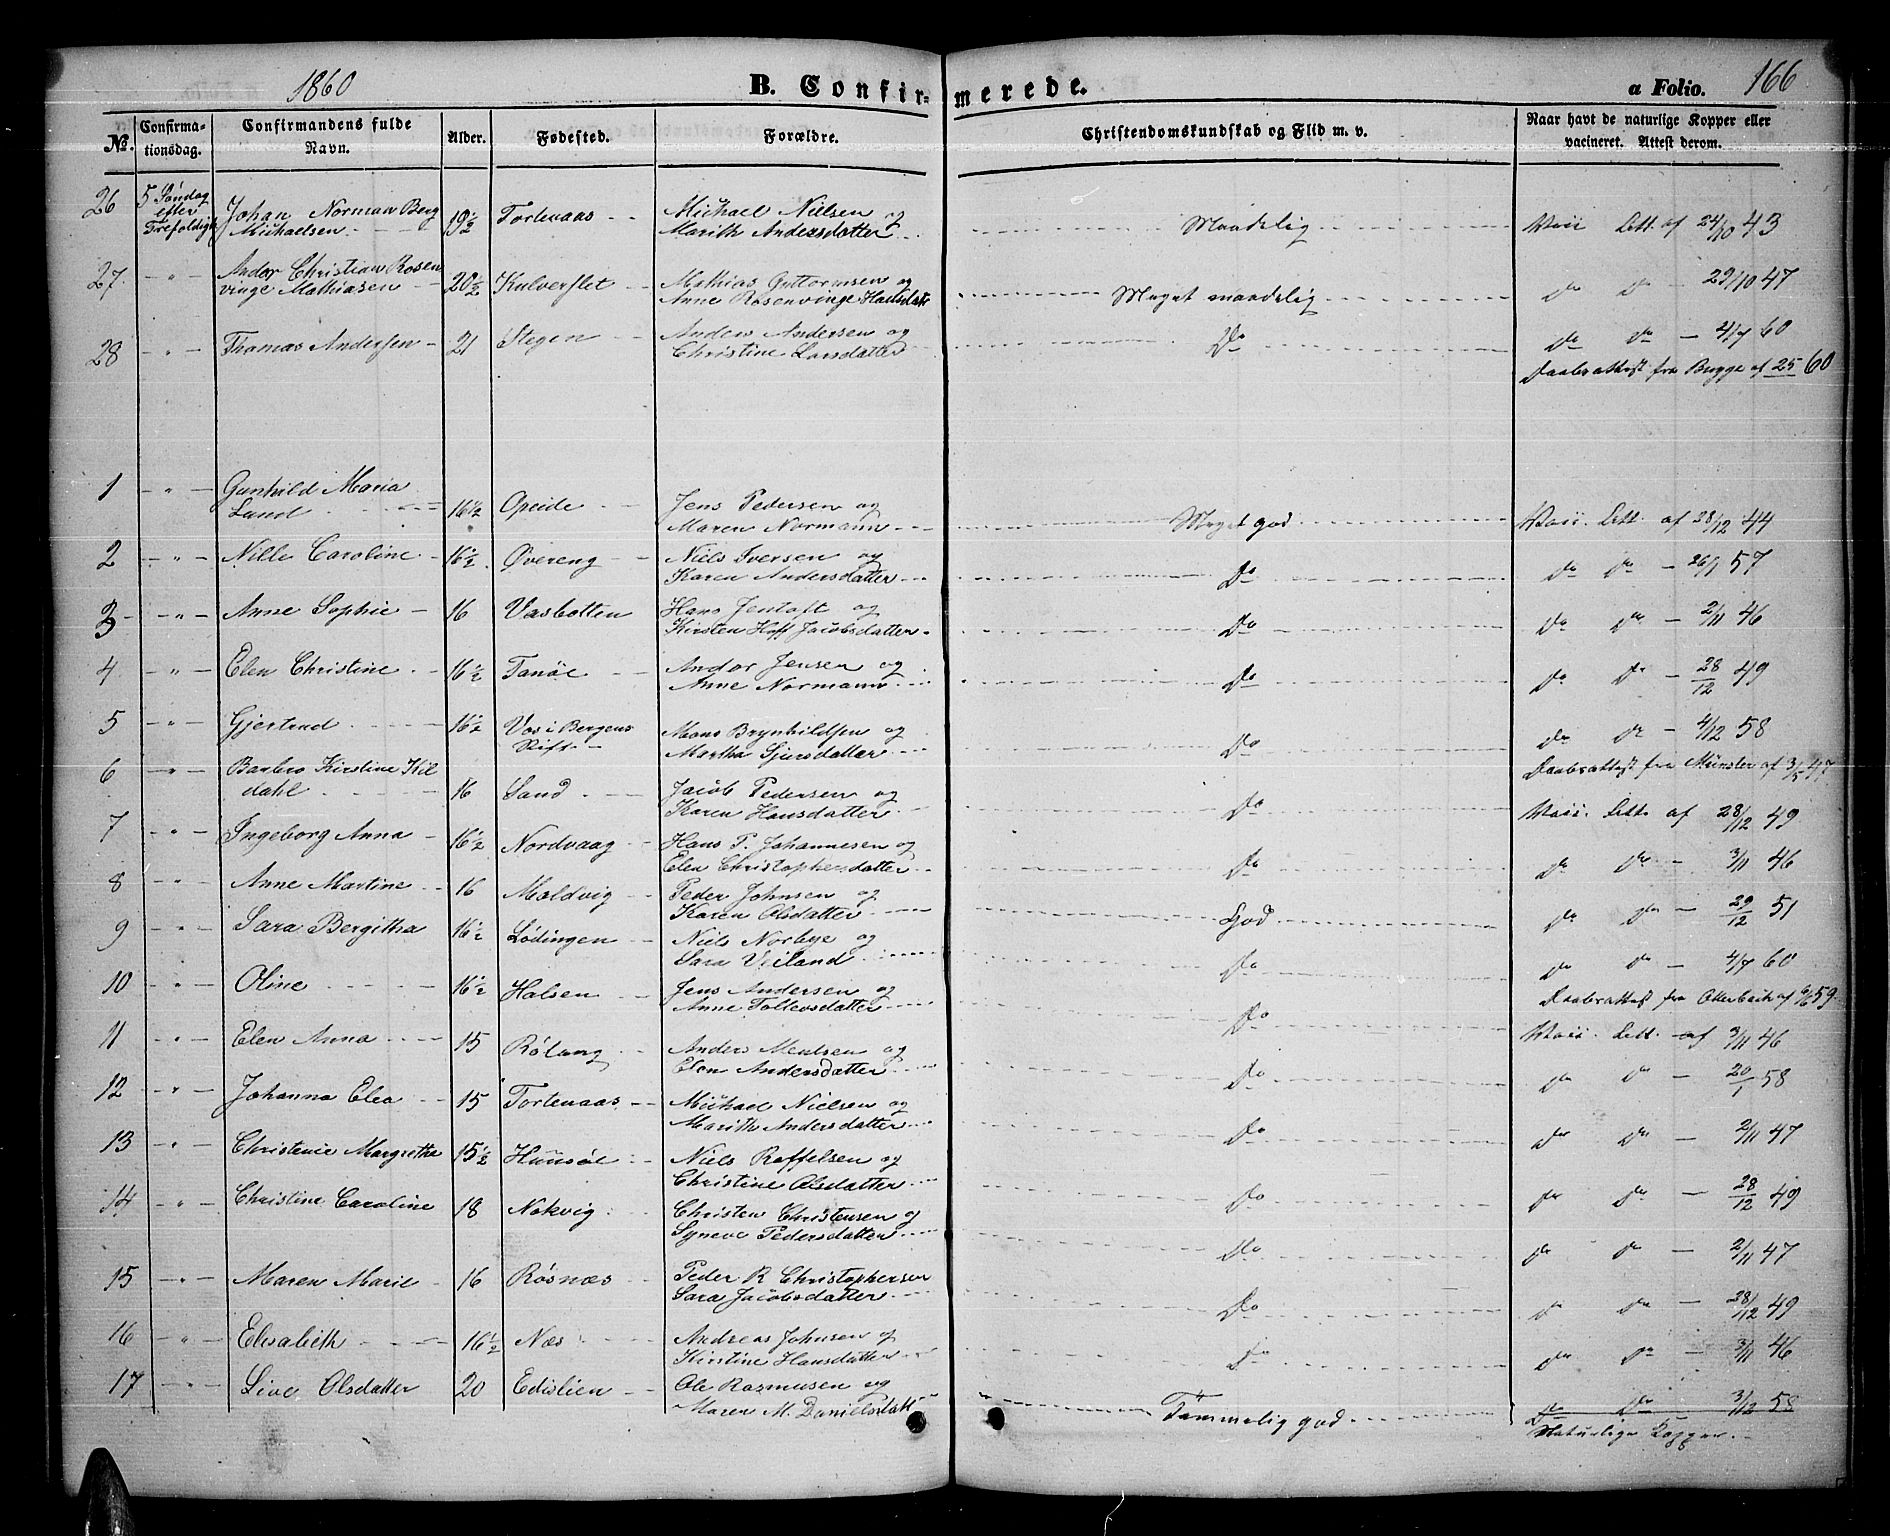 1860 B. Confirmerede. a Folio. 166
No. Confirmationsdag. Confirmandens fulde Navn. Alder. Fødested. Forældre. Christendomskundskab og Flid m. v. Naar havt de naturlige Kopper eller vacineret. Attest derom.
26 5 Søndag efter Trefoldigh Johan Norman Berg Michaelsen 19½ Tortenaas Michael Nielsen og Marith Andersdatter Maadelig Vaii Att. af 24/10 43
27 " Andor Christian Rosenvinge Mathiasen 20½ Kulverflet Mathias Guttormsen og Anne Rosenvinge Hansdatt Meget maadelig Do Do 29/10 47
28 " Thomas Andersen 21 Stegen Anders Andersen og Christine Larsdatter Do Do Do 4/7 60
Daabsattest fra Bugge af 25 60
1 " Gunhild Maria Lund 16½ Opeide Jens Pedersen og Maren Normann Meget god Vaii. Att. af 28/12 44
2 " Nille Caroline 16½ Øvereng Niels Iversen og Karen Andersdatter Do Do Do 26/1 57
3 " Anne Sophie 16 Vasbotten Hans Jentoft og Kirsten Hoff Jacobsdatter Do Do Do 2/11 46
4 " Elen Christine 16½ Tanøe Andor Jensen og Anne Normann Do Do Do 28/12 49
5 " Gjertrud 16½ Vos i Bergens Stift Mons Brynhildsen og Martha Sjursdatter Do Do Do 4/12 58
Daabsattest fra Münster af 3/5 47
6 " Barbro Kirstine Kildahl 16 Sand Jacob Pedersen og Karen Hansdatter Do Vaii. Att. af 28/12 49
7 " Ingeborg Anna 16½ Nordvaag Hans P. Johannesen og Elen Christophersdatter Do Do Do 3/11 46
8 " Anne Martine 16 Moldvig Peder Johnsen og Karen Olsdatter God Do Do 29/12 51
9 " Sara Bergitha 16½ Lødingen Niels Norbye og Sara Veiland Do Do Do 4/7 60
Daabsattest fra Otterbech af 6/6 59.
10 " Oline 16½ Halsen Jens Andersen og Anne Tollevsdatter Do Vaii. Att. af 3/11 46
11 " Elen Anna 15 Røtang Anders Mentsen og Elen Andersdatter Do Do Do 20/1 58
12 " Johanna Elea 15 Tortenaas Michael Nielsen og Marith Andersdatter Do Do Do 2/11 47
13 " Christence Margretha 15½ Hunsøe Niels Roffelsen og Christine Olsdatter Do Do Do 28/12 49
14 " Christine Caroline 18 Nøkvig Christen Christensen og Syneve Pedersdatter Do Do Do 2/11 47
15 " Maren Marie 16 Røsnæs Peder R Christophersen Sara Jacobsdatter Do Do Do 28/12 49
16 " Elisabeth 16½ Næs Andreas Johnsen og Kirstine Hansdatter Do Do Do 3/11 46
17 " Live Olsdatter 20 Edislien Ole Rasmusen og Maren M. Danielsdatt Tømmelig god Do Do 3/12 58
Naturlige Kopper